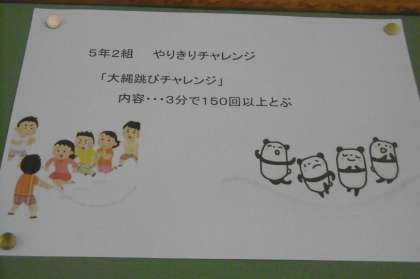 ５年２組　やりきりチャレンジ
「大縄跳びチャレンジ」
内容・・・３分で１５０回以上とぶ